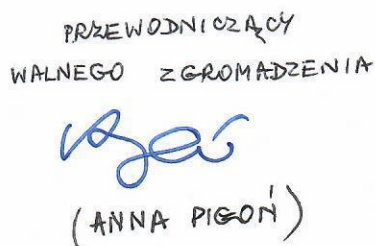 PRZEWODNICZĄCY
WALNEGO ZGROMADZENIA
(ANNA PIGOŃ)